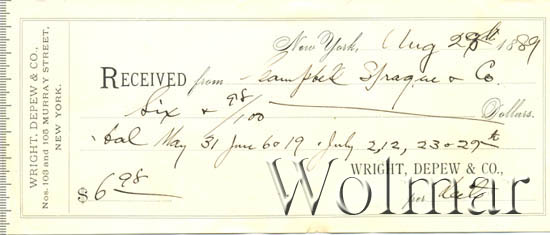 WRIGHT, DEPEW & CO.,
Nos. 103 and 105 MURRAY STREET,
NEW YORK.
New York, Aug 28th 1889
RECEIVED from Sprague & Co.
Six & 98/100 Dollars.
Bal May 31 June 6 & 19 . July 2, 12, 23 & 29th
WRIGHT, DEPEW & CO.,
$6 98 per
Wolmar